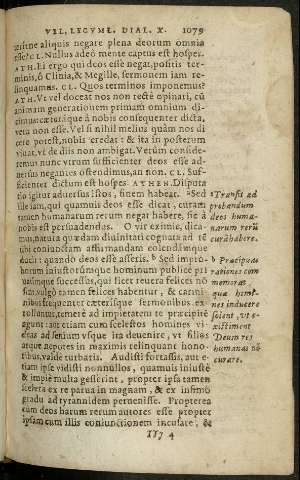 VEL, LEGVML. DIAL. X. 1079
æstne aliquis negare plena deorum omnia
esse? CL. Nullus adeò mente captus est hospes.
ATH. Ei ergo qui deos esse negat, positis ter-
minis, ô Clinia, & Megille, sermonem iam re-
linquamus. CL. Quos terminos imponemus?
ATH. Vt vel doceat nos non rectè opinari, cú
animam generationem primam omnium di-
cimus: cæteráque à nobis consequenter dicta,
vera non esse. Vel si nihil melius quàm nos di
cere potest, nobis credat: & ita in posterum
viuat, vt de diis non ambigat. Verùm conside-
remus nunc vtrum sufficienter deos esse ad-
uersus negantes ostendimus, an non. CL. Suf-
ficienter dictum est hospes. ATHEN. Disputa
tio igitur aduersus istos, finem habeat. Sed
ille iam, qui quamuis deos esse dicat, curam
tamen humanarum rerum negat habere, sic à
nobis est persuadendus. O vir eximie, dica-
mus, natura quædam diuinitati cognata ad
tibi coniunctam affirmandam colendámque
ducit: quandò deos esse asseris. b Sed impro-
borum iniustorúmque hominum publicè pri
uatímque successus, qui licet reuera felices nó
sint, vulgò tamen felices habentur, & carmi-
nibus frequenter cæterisque sermonibus ex-
tolluntur, temerè ad impietatem te præcipité
agunt: aut etiam cum scelestos homines vi-
deas ad senium vsque ita deuenire, vt filios
atque nepotes in maximis relinquant hono-
ribus, valde turbatis. Audisti fortassis, aut e-
tiam ipse vidisti nonnullos, quamuis iniustè
& impiè multa gesserint, propter ipsa tamen
scelera ex re parua in magnam, & ex infimo
gradu ad tyrannidem peruenisse. Propterea
cum deos harum rerum autores esse propter
ipsam cum illis coniunctionem incusare, &
a Transit ad
probandum
deos huma-
narum rerũ
curã habere.
b Præcipuas
rationes com
memorat,
quæ homi-
nes inducere
solent, vt e-
xistiment
Deum res
humanas nõ
curare.
117 4